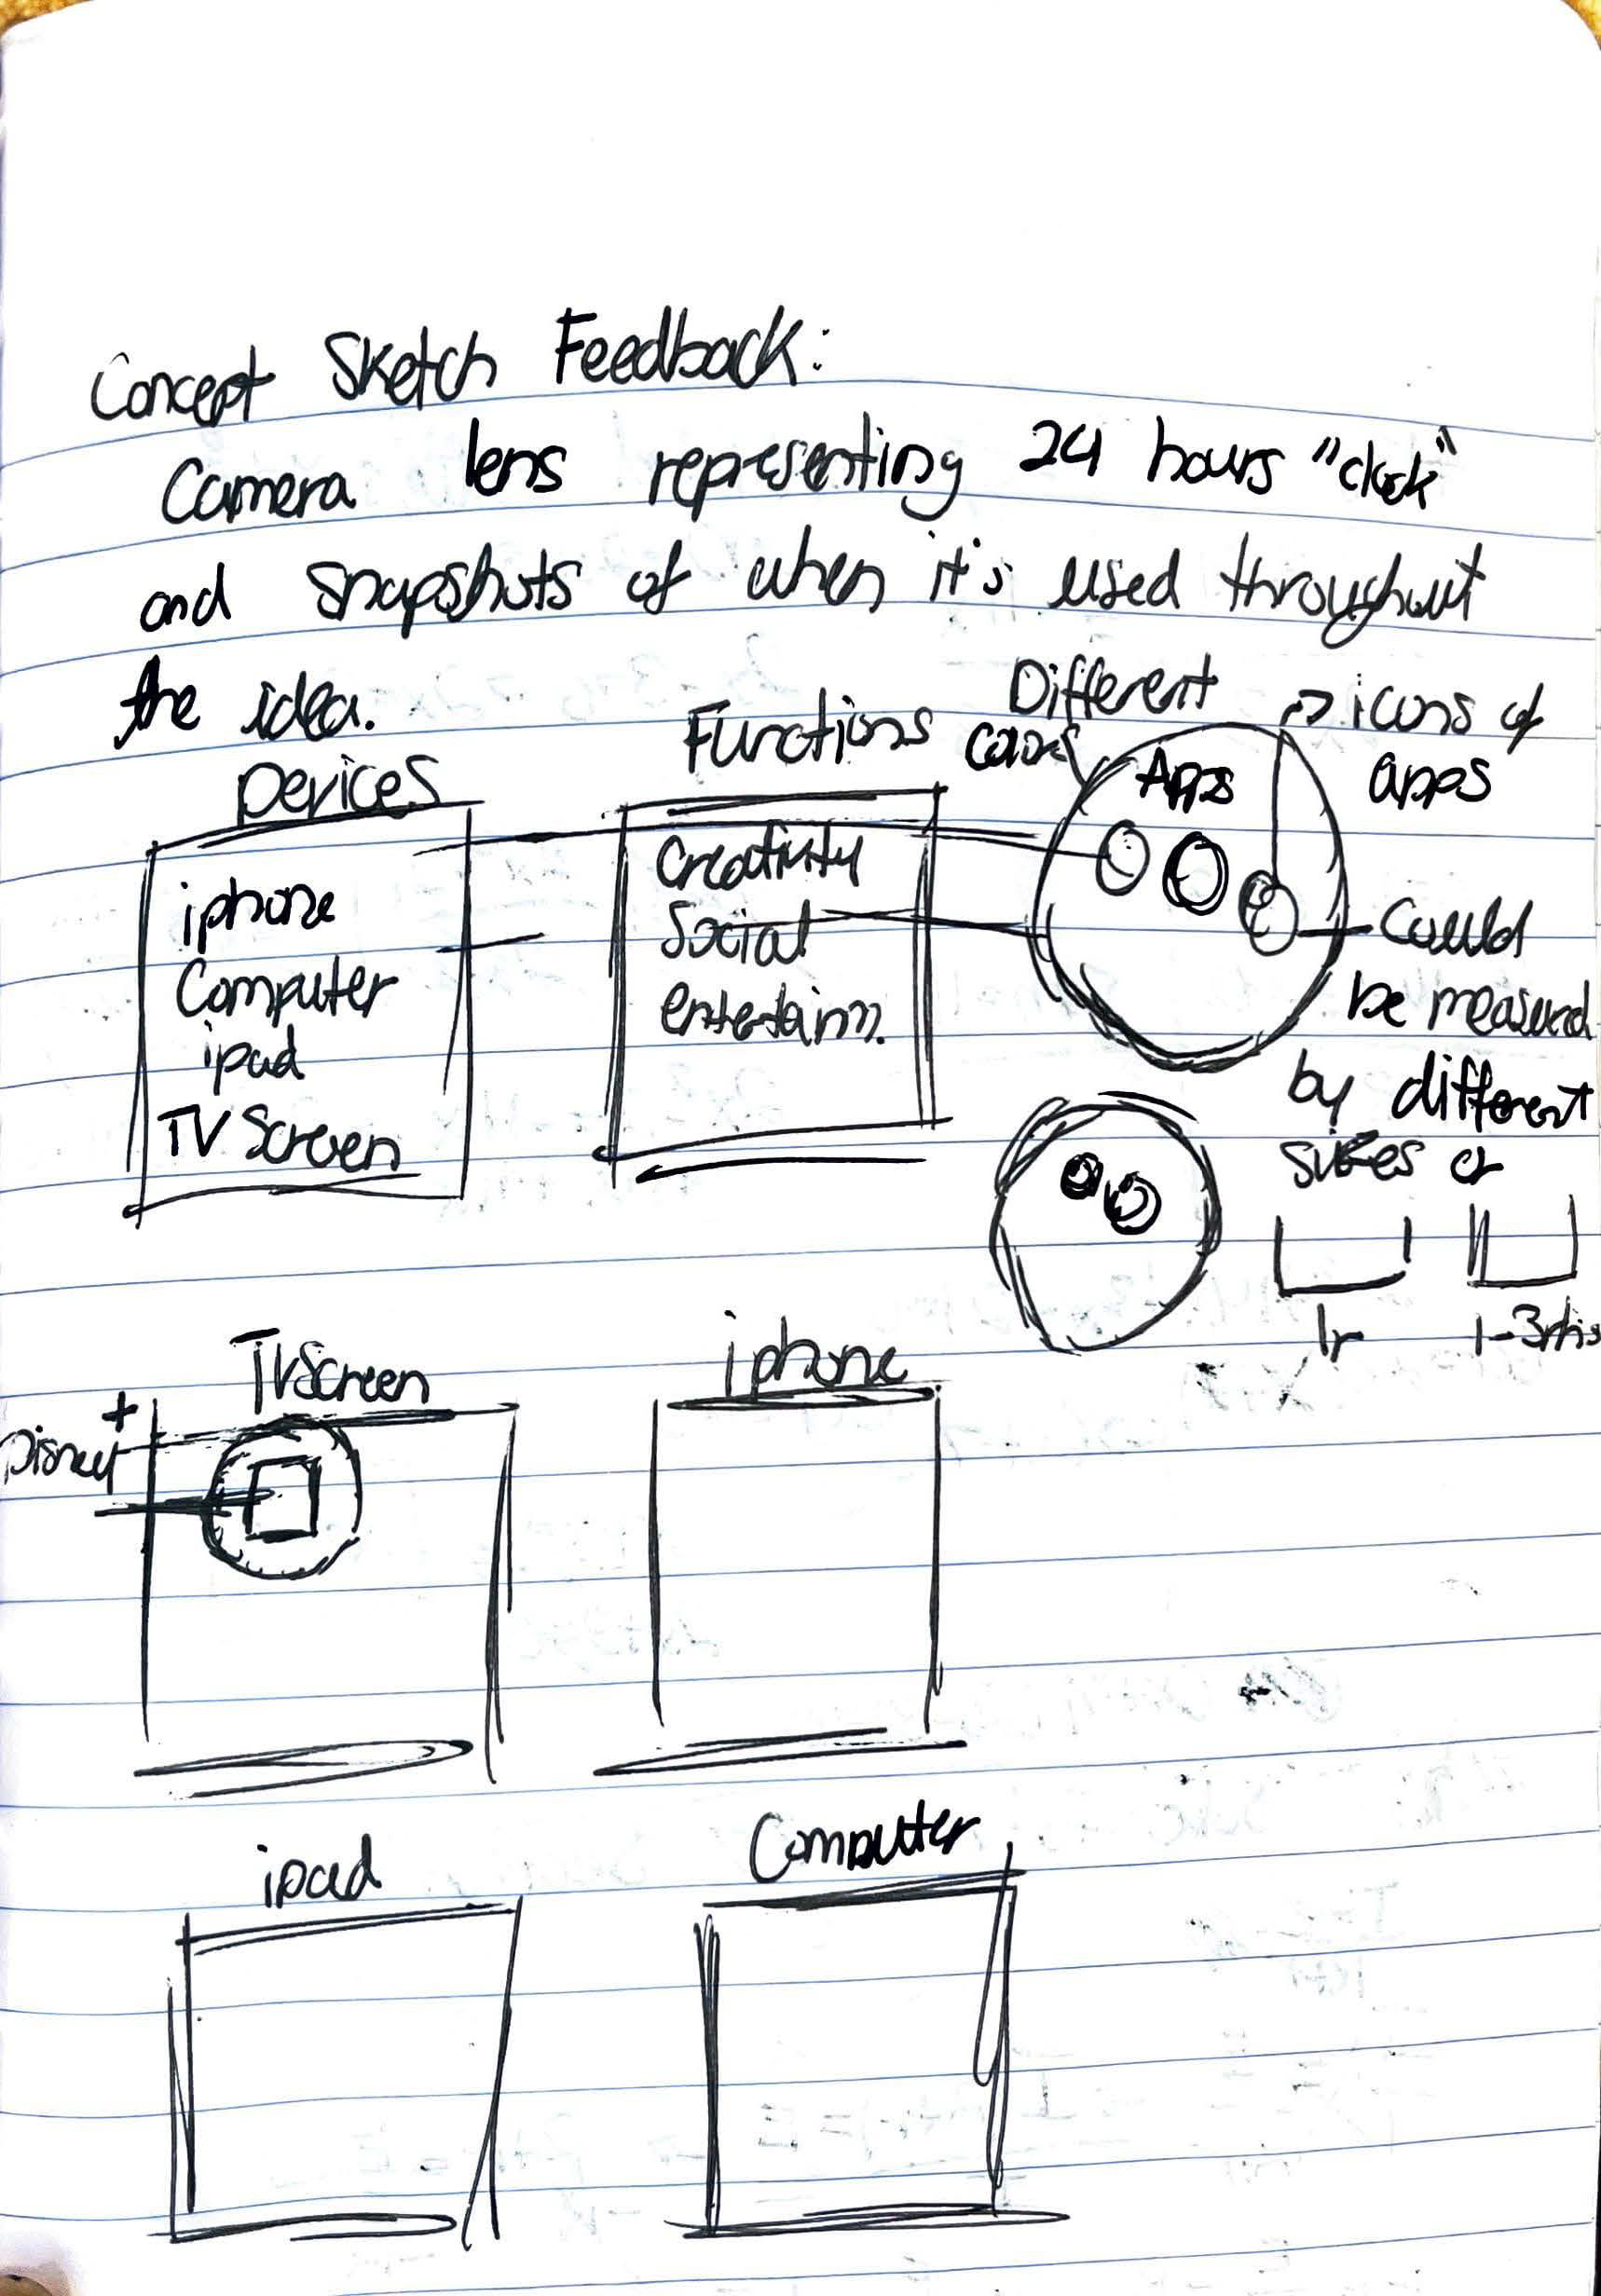 Concept Sketch Feedback:
Camera lens representing 24 hours "clock"
and snapshots of when it's used throughout
the idea.
Devices
iphone
Computer
ipad
TV Screen
Functions
Creativity
Social
entertainm.
Different
colors
Apps
icons of
apps
Could
be measured
by different
sizes or
1r
TV Screen
Disney+
iphone
ipad
Computer